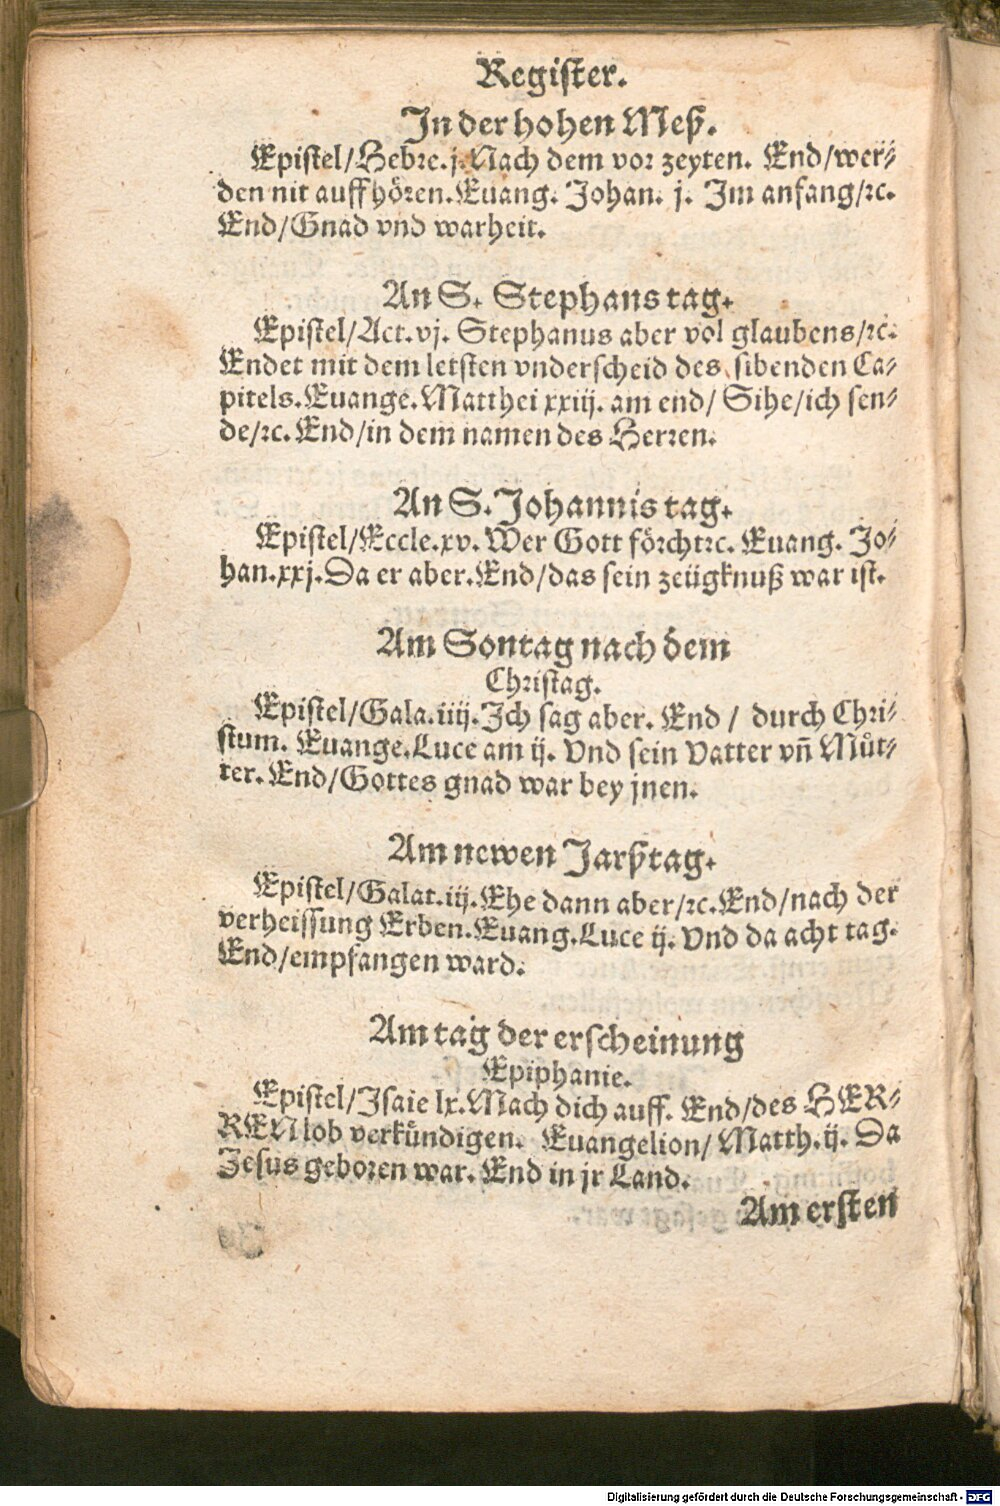 Register.
In der hohen Meß.
Epistel/Hebre.j.Nach dem vor zeyten. End/wer⸗
den nit auffhören.Euang. Johan. j. Im anfang/ꝛc.
End/Gnad vnd warheit.
An S. Stephans tag.
Epistel/Act.vj. Stephanus aber vol glaubens/ꝛc.
Endet mit dem letsten vnderscheid des sibenden Ca⸗
pitels.Euange.Matthei xxiij. am end/ Sihe/ich sen⸗
de/ꝛc.End/in dem namen des Herren.
An S.Johannis tag.
Epistel/Eccle.xv.Wer Gott förchtꝛc. Euang. Jo⸗
han.xxj.Da er aber.End/das sein zeügknuß war ist.
Am Sontag nach dem
Christag.
Epistel/Gala.iiij.Ich sag aber. End / durch Chri⸗
stum. Euange.Luce am ij. Vnd sein Vatter vñ Můt⸗
ter.End/Gottes gnad war bey jnen.
Am newen Jarßtag.
Epistel/Galat.iij.Ehe dann aber/ꝛc.End/nach der
verheissung Erben.Euang.Luce ij. Vnd da acht tag.
End/empfangen ward.
Am tag der erscheinung
Epiphanie.
Epistel/Isaie lx.Mach dich auff. End/des HER⸗
REN lob verkündigen. Euangelion/ Matth.ij. Da
Jesus geboren war.End in jr Land.
Am ersten
Digitalisierung gefördert durch die Deutsche Forschungsgemeinschaft - DFG